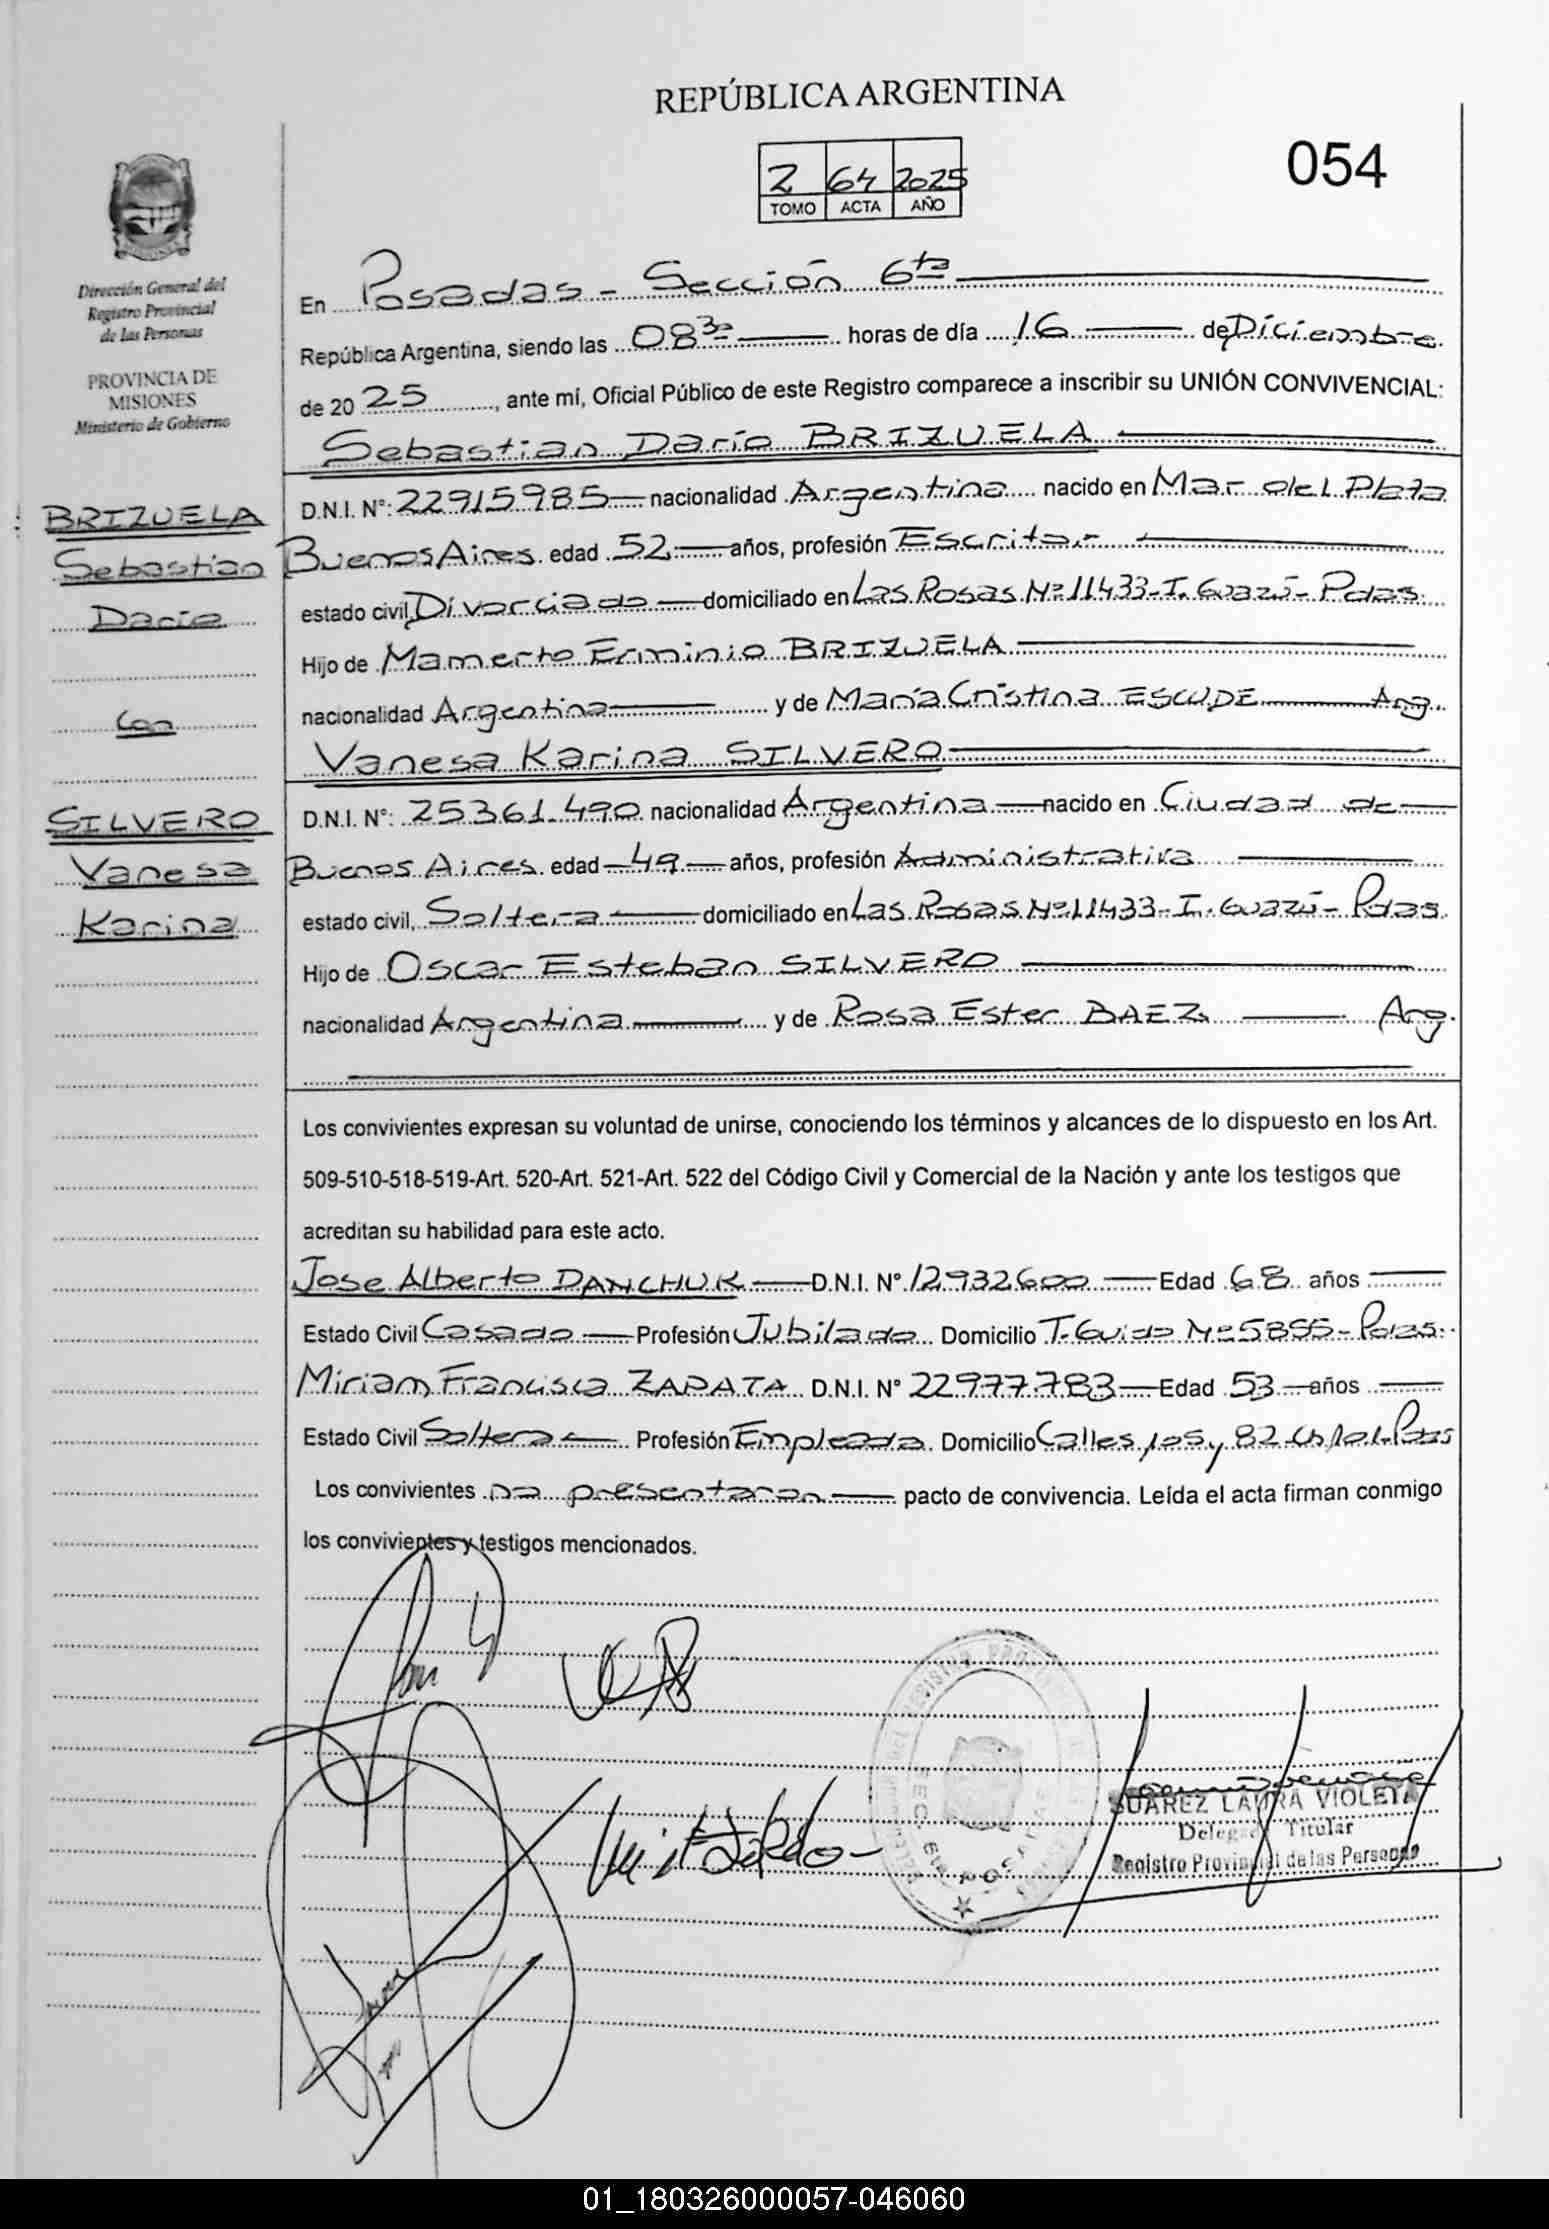 REPÚBLICA ARGENTINA
054
2 64 2025
TOMO ACTA AÑO
Dirección General del
Registro Provincial
de las Personas
PROVINCIA DE
MISIONES
Ministerio de Gobierno
BRIZUELA
Sebastian
Darío
Con
SILVERO
Vanesa
Karina
En Posadas - Sección 6ta
República Argentina, siendo las 08 30 horas de día 16 de Diciembre
de 20 25, ante mí, Oficial Público de este Registro comparece a inscribir su UNIÓN CONVIVENCIAL:
Sebastian Darío BRIZUELA
D.N.I. N°: 22915985 nacionalidad Argentina nacido en Mar del Plata
Buenos Aires edad 52 años, profesión Escritor
estado civil, Divorciado domiciliado en Las Rosas Nº 11433-I. Guazú - Pdas.
Hijo de Mamerto Erminio BRIZUELA
nacionalidad Argentina y de María Cristina ESCUDE Arg.
Vanesa Karina SILVERO
D.N.I. N°: 25361.490 nacionalidad Argentina nacido en Ciudad de
Buenos Aires edad 49 años, profesión Administrativa
estado civil, Soltera domiciliado en Las Rosas Nº 11433-I. Guazú - Pdas.
Hijo de Oscar Esteban SILVERO
nacionalidad Argentina y de Rosa Ester BAEZ Arg.
Los convivientes expresan su voluntad de unirse, conociendo los términos y alcances de lo dispuesto en los Art.
509-510-518-519-Art. 520-Art. 521-Art. 522 del Código Civil y Comercial de la Nación y ante los testigos que
acreditan su habilidad para este acto.
Jose Alberto DANCHUK D.N.I. N° 12.932.600 Edad 68 años
Estado Civil Casado Profesión Jubilado Domicilio T. Guido Nº 5855 - Pdas.
Miriam Francisca ZAPATA D.N.I. N° 22.977.783 Edad 53 años
Estado Civil Soltera Profesión Empleada Domicilio Calles 105 y 82 Pdas
Los convivientes no presentaron pacto de convivencia. Leída el acta firman conmigo
los convivientes y testigos mencionados.
SUAREZ LAURA VIOLETA
Delegada Titular
Registro Provincial de las Personas
SEC. 6ta POSADAS
01_180326000057-046060